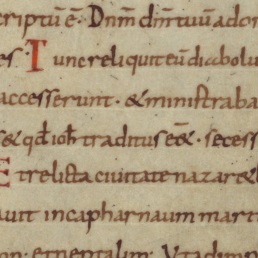 criptū ē· Dn̄m dm̄ tuū ador
es· Tunc reliquit eū diabolu
accesserunt· & ministraba
& qd̄ ioh̄ traditus eēt· secess
Et relicta ciuitate nazar&
auit in capharnaum mari